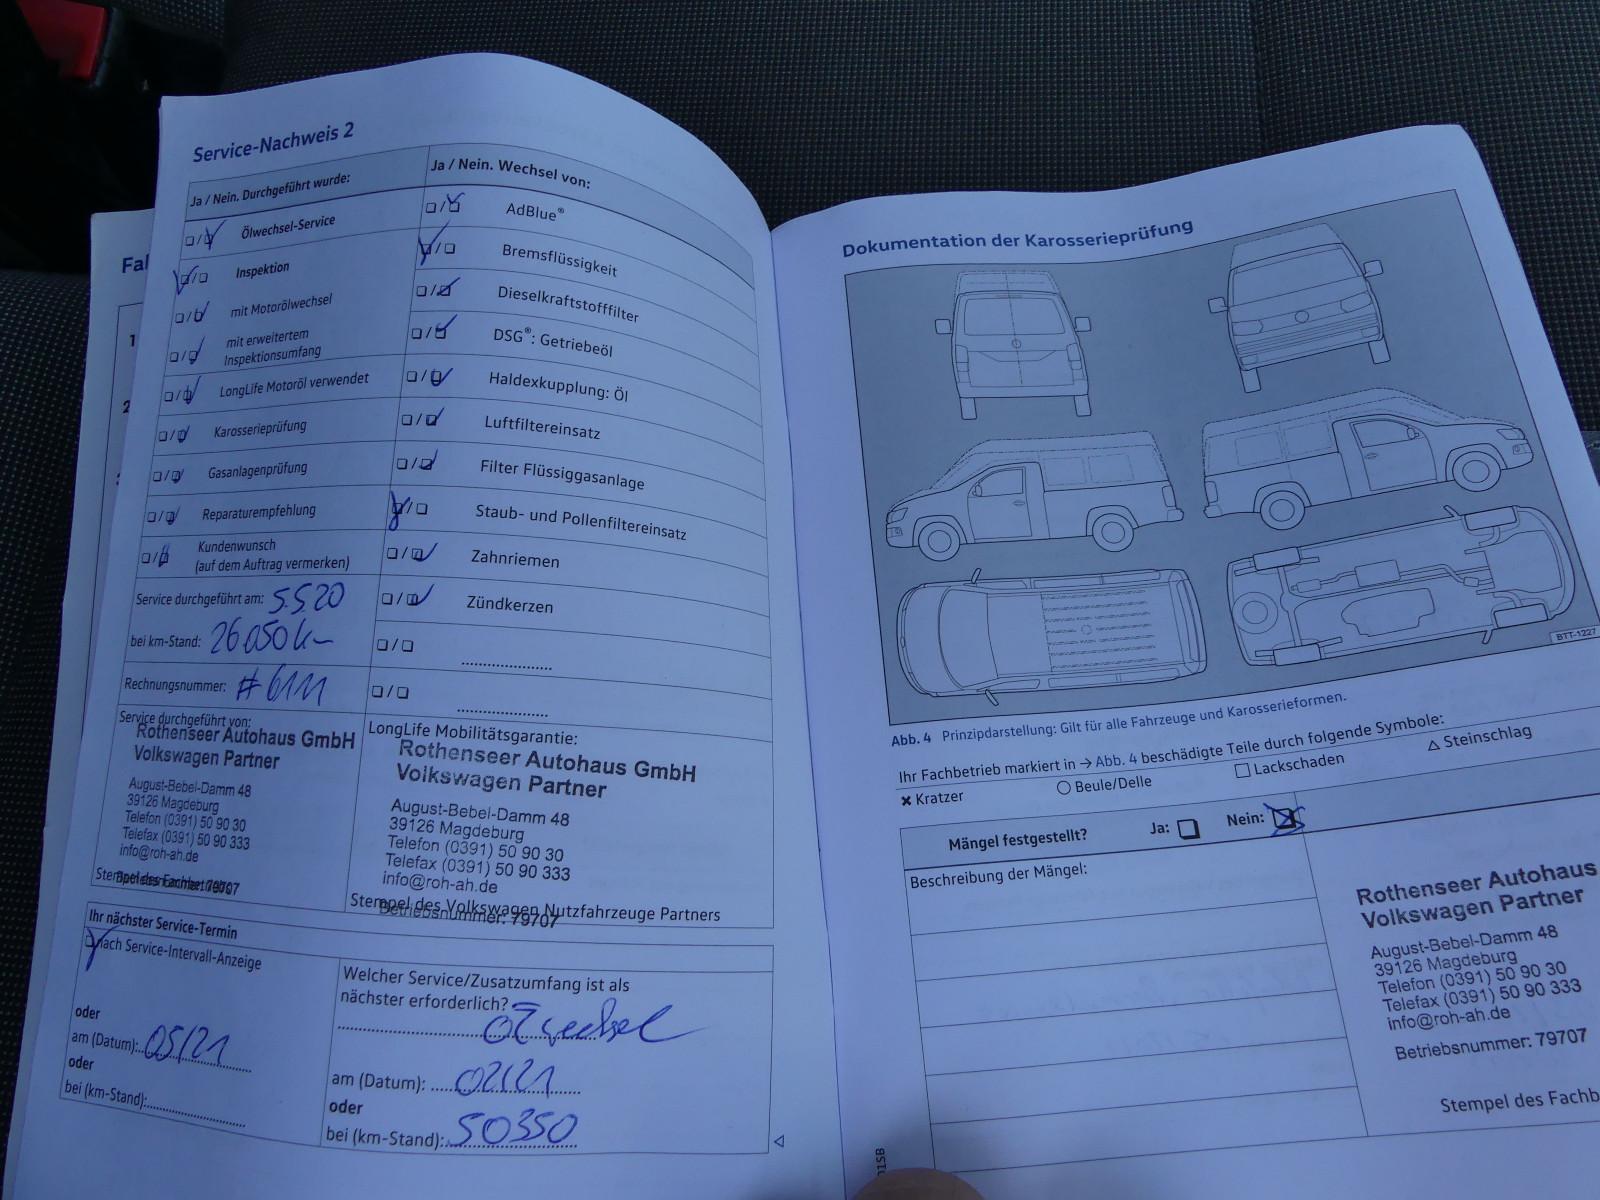 Service-Nachweis 2
Ja / Nein. Durchgeführt wurde:
Ölwechsel-Service
Inspektion
mit Motorölwechsel
mit erweitertem
Inspektionsumfang
LongLife Motoröl verwendet
Karosserieprüfung
Gasanlagenprüfung
Reparaturempfehlung
Kundenwunsch
(auf dem Auftrag vermerken)
Service durchgeführt am: 5.5.20
bei km-Stand: 26050 km
Rechnungsnummer: #6111
Service durchgeführt von:
Rothenseer Autohaus GmbH
Volkswagen Partner
August-Bebel-Damm 48
39126 Magdeburg
Telefon (0391) 50 90 30
Telefax (0391) 50 90 333
info@roh-ah.de
Stempel des Fachbetriebs
Betriebsnummer: 79707
Ja / Nein. Wechsel von:
AdBlue®
Bremsflüssigkeit
Dieselkraftstofffilter
DSG®: Getriebeöl
Haldexkupplung: Öl
Luftfiltereinsatz
Filter Flüssiggasanlage
Staub- und Pollenfiltereinsatz
Zahnriemen
Zündkerzen
LongLife Mobilitätsgarantie:
Rothenseer Autohaus GmbH
Volkswagen Partner
August-Bebel-Damm 48
39126 Magdeburg
Telefon (0391) 50 90 30
Telefax (0391) 50 90 333
info@roh-ah.de
Stempel des Volkswagen Nutzfahrzeuge Partners
Betriebsnummer: 79707
Ihr nächster Service-Termin
nach Service-Intervall-Anzeige
oder
am (Datum): 05/21
oder
bei (km-Stand):
Welcher Service/Zusatzumfang ist als
nächster erforderlich?
Ölwechsel
am (Datum): 02/21
oder
bei (km-Stand): 50350
Fal
1
2
Dokumentation der Karosserieprüfung
BTT-1227
Abb. 4 Prinzipdarstellung: Gilt für alle Fahrzeuge und Karosserieformen.
Ihr Fachbetrieb markiert in → Abb. 4 beschädigte Teile durch folgende Symbole:
✖ Kratzer ○ Beule/Delle □ Lackschaden △ Steinschlag
Mängel festgestellt? Ja: Nein:
Beschreibung der Mängel:
Rothenseer Autohaus
Volkswagen Partner
August-Bebel-Damm 48
39126 Magdeburg
Telefon (0391) 50 90 30
Telefax (0391) 50 90 333
info@roh-ah.de
Betriebsnummer: 79707
Stempel des Fachb